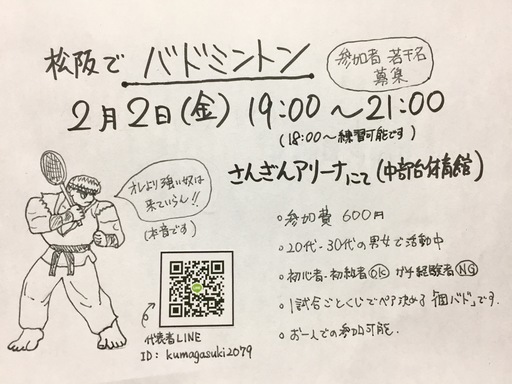 松阪で バドミントン
参加者 若干名
募集
2月2日(金) 19:00～21:00
(18:00～練習可能です)
さんぎんアリーナにて(中部台体育館)
オレより強い奴は
来ていらん!!
(本音です)
○参加費 600円
○20代-30代の男女で活動中
○初心者-初級者OK ガチ経験者NG
○1試合ごとくじでペア決める「個バド」です。
○お一人での参加可能。
代表者LINE
ID: kumagasuki2079